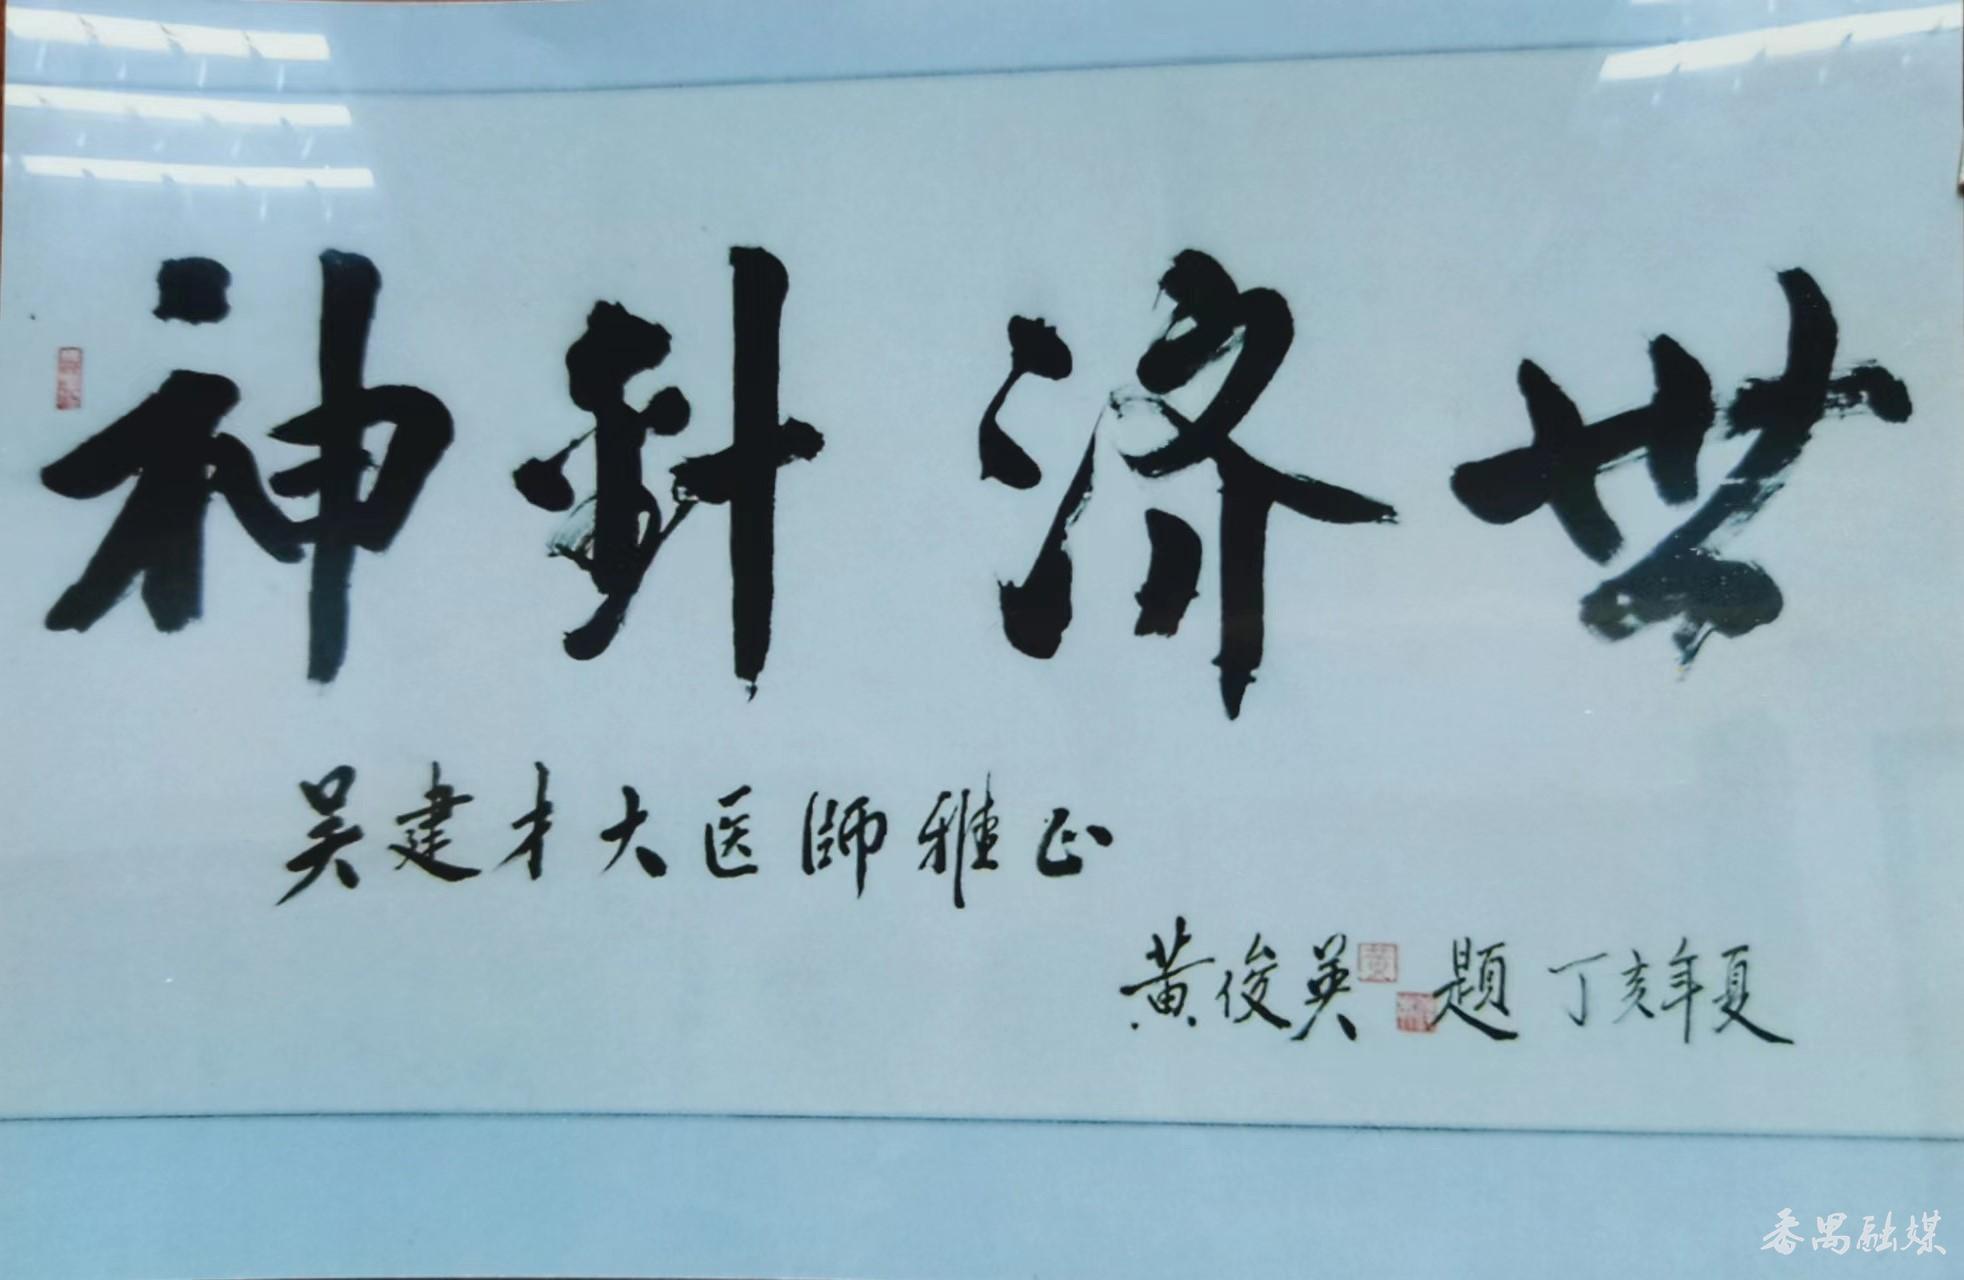 神針济世
吴建才大医師雅正
黄俊英題丁亥年夏
番禺融媒